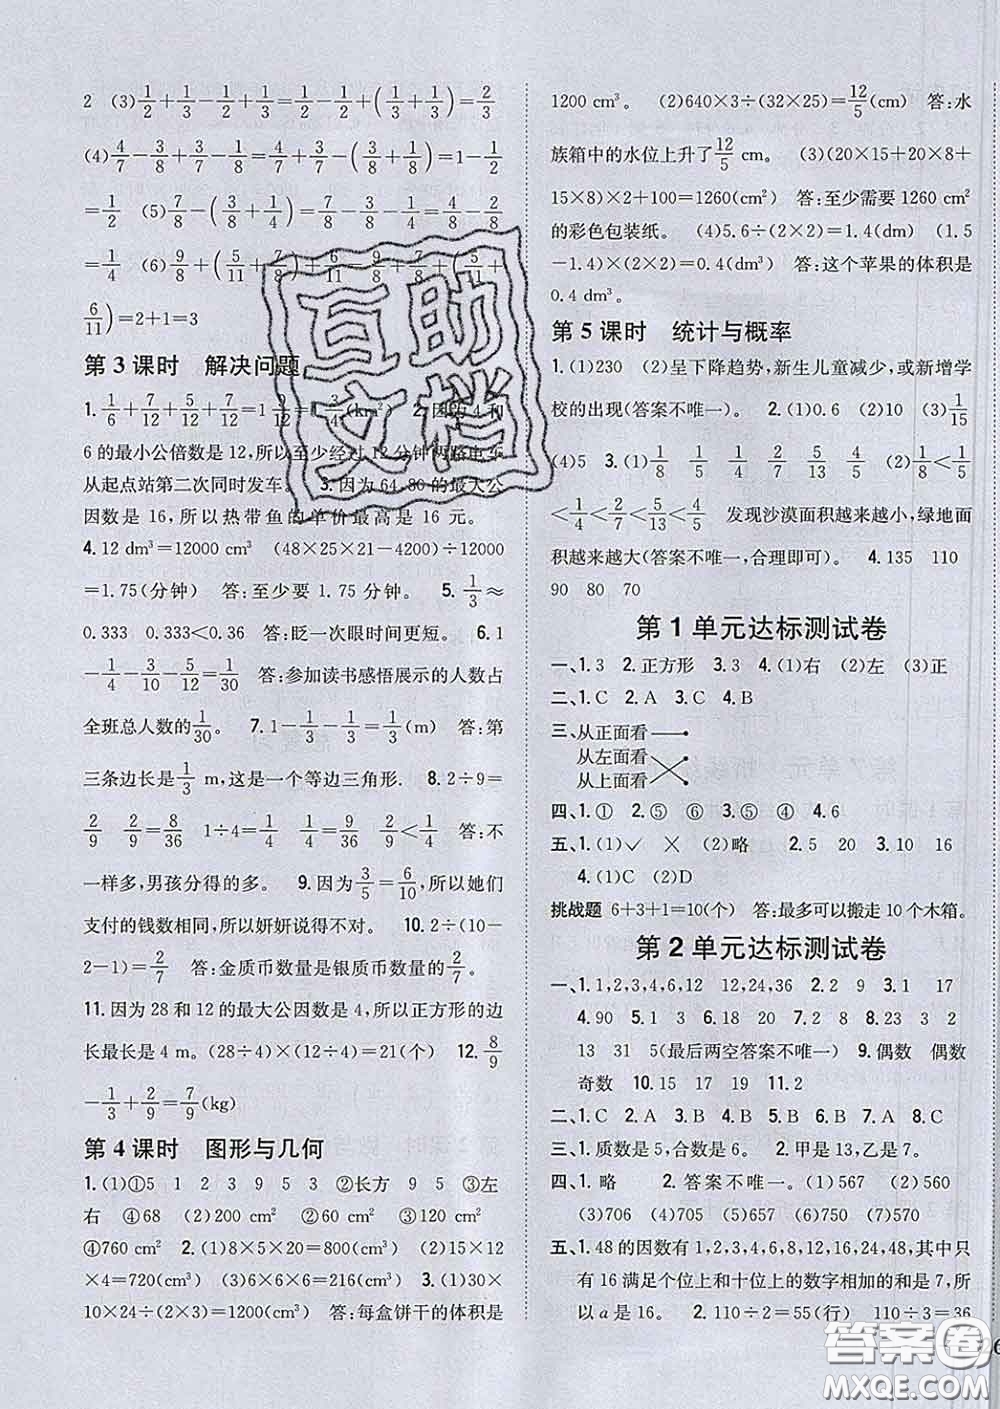 2 (3)1/2+1/3-1/2+1/3=1/2-1/2+(1/3+1/3)=2/3
(4)4/7-3/8+3/7-1/8=4/7+3/7-(3/8+1/8)=1-1/2
=1/2 (5)7/8-(3/8+1/4)=7/8-3/8-1/4=4/8-2/8
=1/4 (6)9/8+(5/11+7/8)+6/11=9/8+7/8+(5/11+
6/11)=2+1=3
第 3 课时 解决问题
1.1/6+7/12+5/12+7/12=1 9/12=1 3/4(km²) 2.因为 4 和
6 的最小公倍数是 12,所以至少经过 12 分钟两路电车
从起点站第二次同时发车。 3.因为 64,80 的最大公
因数是 16,所以热带鱼的单价最高是 16 元。
4.12 dm³=12000 cm³ (48×25×21-4200)÷12000
=1.75(分钟) 答:至少要 1.75 分钟。 5.1/3≈
0.333 0.333<0.36 答:眨一次眼时间更短。 6.1
-1/4-3/10-5/12=1/30 答:参加读书感悟展示的人数占
全班总人数的1/30。 7.1-1/3-1/3=1/3(m) 答:第
三条边长是1/3 m,这是一个等边三角形. 8.2÷9=
2/9 2/9=8/36 1÷4=1/4 1/4=9/36 2/9<1/4 答:不
一样多,男孩分得的多。 9.因为3/5=6/10,所以她们
支付的钱数相同,所以妍妍说得不对。 10.2÷(10-
2-1)=2/7 答:金质币数量是银质币数量的2/7。
11.因为 28 和 12 的最大公因数是 4,所以正方形的边
长最长是 4 m。(28÷4)×(12÷4)=21(个) 12.8/9
-1/3+2/9=7/9(kg)
第 4 课时 图形与几何
1.(1)①5 1 2 3 9 5 3 ②长方 9 5 ③左
右 ④68 (2)200 cm² ②60 cm² ③120 cm²
④760 cm² 2.(1)8×5×20=800(cm³) (2)15×12
×4=720(cm³) (3)6×6×6=216(cm³) 3.(1)30×
10×24÷(2×3)=1200(cm³) 答:每盒饼干的体积是
1200 cm³。 (2)640×3÷(32×25)=12/5(cm) 答:水
族箱中的水位上升了12/5 cm。 (3)(20×15+20×8+
15×8)×2+100=1260(cm²) 答:至少需要 1260 cm²
的彩色包装纸。 (4)5.6÷(2×2)=1.4(dm) (1.5
-1.4)×(2×2)=0.4(dm³) 答:这个苹果的体积是
0.4 dm³。
第 5 课时 统计与概率
1.(1)230 (2)呈下降趋势,新生儿童减少,或新增学
校的出现(答案不唯一)。 2.(1)0.6 (2)10 (3)1/15
(4)5 3.(1)1/8 1/5 1/4 2/7 5/13 4/5 (2)1/8<1/5
<1/4<2/7<5/13<4/5 发现沙漠面积越来越小,绿地面
积越来越大(答案不唯一,合理即可)。 4.135 110
90 80 70
第 1 单元达标测试卷
一、1.3 2.正方形 3.3 4.(1)右 (2)左 (3)正
二、1.C 2.A 3.C 4.B
三、从正面看
从左面看
从上面看
四、1.① 2.⑤ ⑥ 3.⑤ ⑤ 4.6
五、1.(1)✓ × (2)略 2.5 20 3.10 16
4.(1)C (2)D
挑战题 6+3+1=10(个) 答:最多可以搬走 10 个木箱。
第 2 单元达标测试卷
一、1.1,2,3,4,6,12 12,24,36 2.2 9 3.1 17
4.90 5.1 3 6.18 20 7.2 8 8.23 3 2
13 31 5(最后两空答案不唯一) 9.偶数 偶数
奇数 10.15 17 19 11.2
二、1.C 2.A 3.B 4.C 5.B 6.B 7.A 8.C
三、1.质数是 5,合数是 6。 2.甲是 13,乙是 7。
四、1.略 2.答案不唯一。(1)567 (2)560
(3)706 (4)705 (5)657 (6)750 (7)570
五、1.48 的因数有 1,2,3,4,6,8,12,16,24,48,其中只
有 16 满足个位上和十位上的数字相加的和是 7,所
以 a 是 16。 2.110÷2=55(行) 110÷3=36
互助
文档
答案圈
MXQE.COM